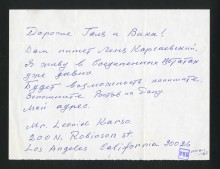 Дорогие Галя и Вика!
Вам пишет Лёня Каргаевский.
Я живу в Соединенных Штатах
уже давно
Будет возможность напишите.
Вспомните Ростов на Дону
Мой адрес.
Mr. Leonid Karso
200 N. Robinson st.
Los Angeles California 90026